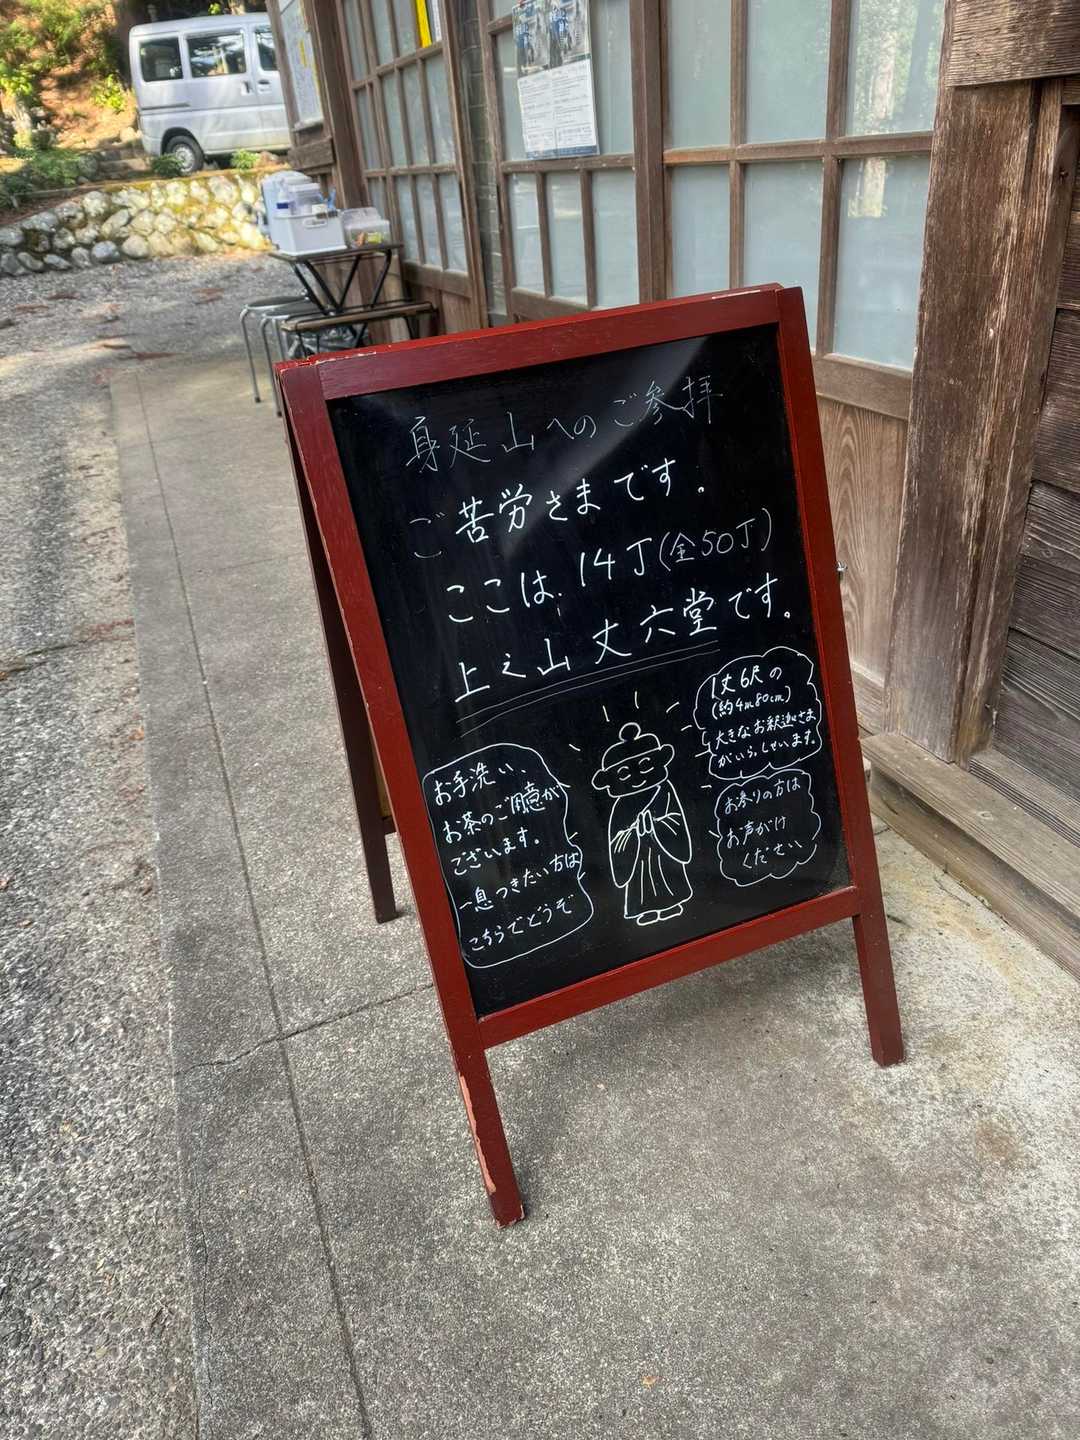 身延山へのご参拝
ご苦労さまです。
ここは、14丁(全50丁)
上之山丈六堂です。
お手洗い、
お茶のご用意が
ございます。
一息つきたい方は
こちらでどうぞ
1丈6尺の
(約4m80cm)
大きなお釈迦さま
がいらっしゃいます。
お参りの方は
お声がけ
ください